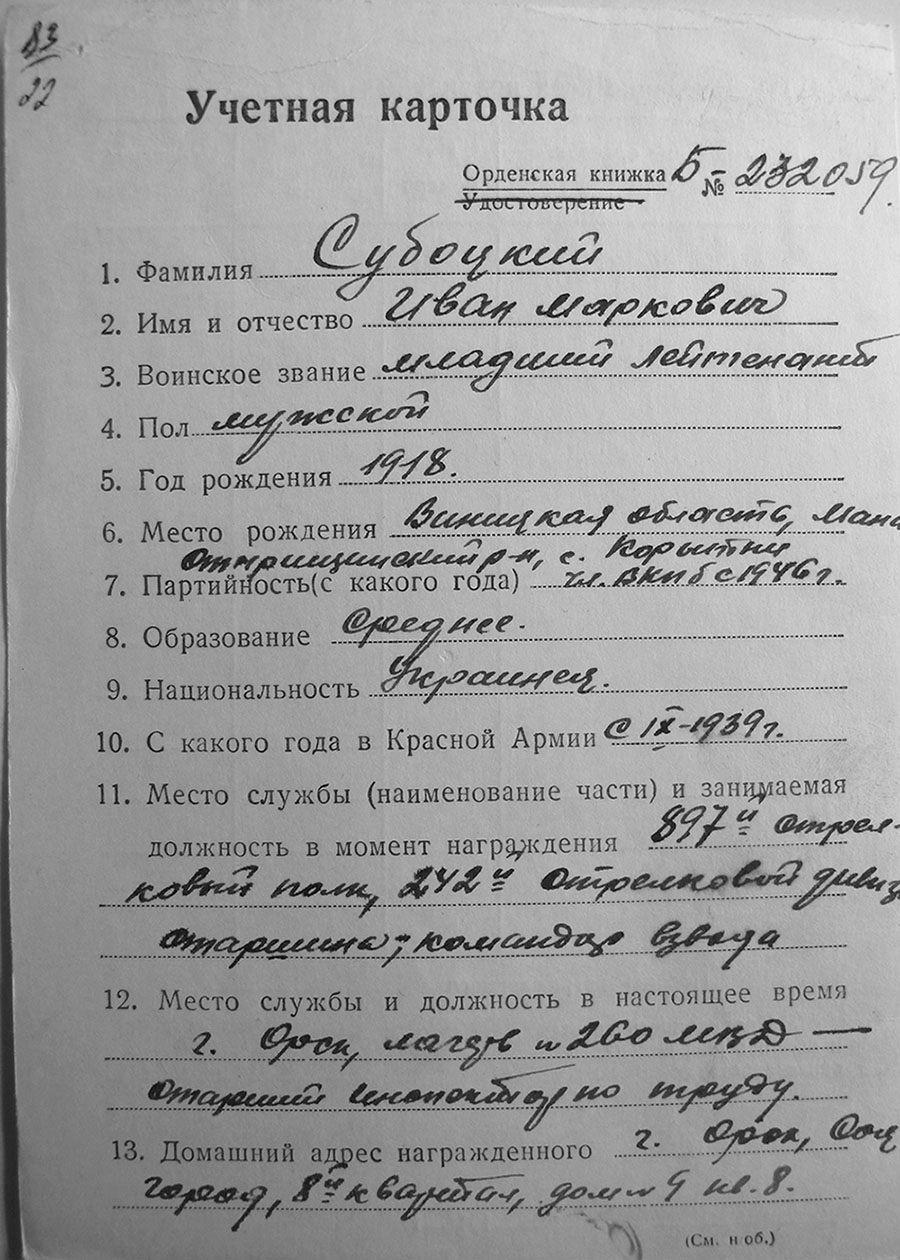 83
22
Учетная карточка
Орденская книжка Б № 232059.
Удостоверение
1. Фамилия Субоцкий
2. Имя и отчество Иван Маркович
3. Воинское звание младший лейтенант
4. Пол мужской
5. Год рождения 1918.
6. Место рождения Виницкая область,
р-н, с. Корытни
7. Партийность(с какого года) чл. ВКПб с 1946 г.
8. Образование Среднее.
9. Национальность Украинец.
10. С какого года в Красной Армии с IX-1939 г.
11. Место службы (наименование части) и занимаемая
должность в момент награждения 897й стрел-
ковый полк, 242й стрелковой дивиз
старшина, командир взвода
12. Место службы и должность в настоящее время
г. Орск, лагерь № 260 МВД —
старший инспектор по труду.
13. Домашний адрес награжденного г. Орск, Соц
город, 8й квартал, дом № 9 кв. 8.
(См. н об.)